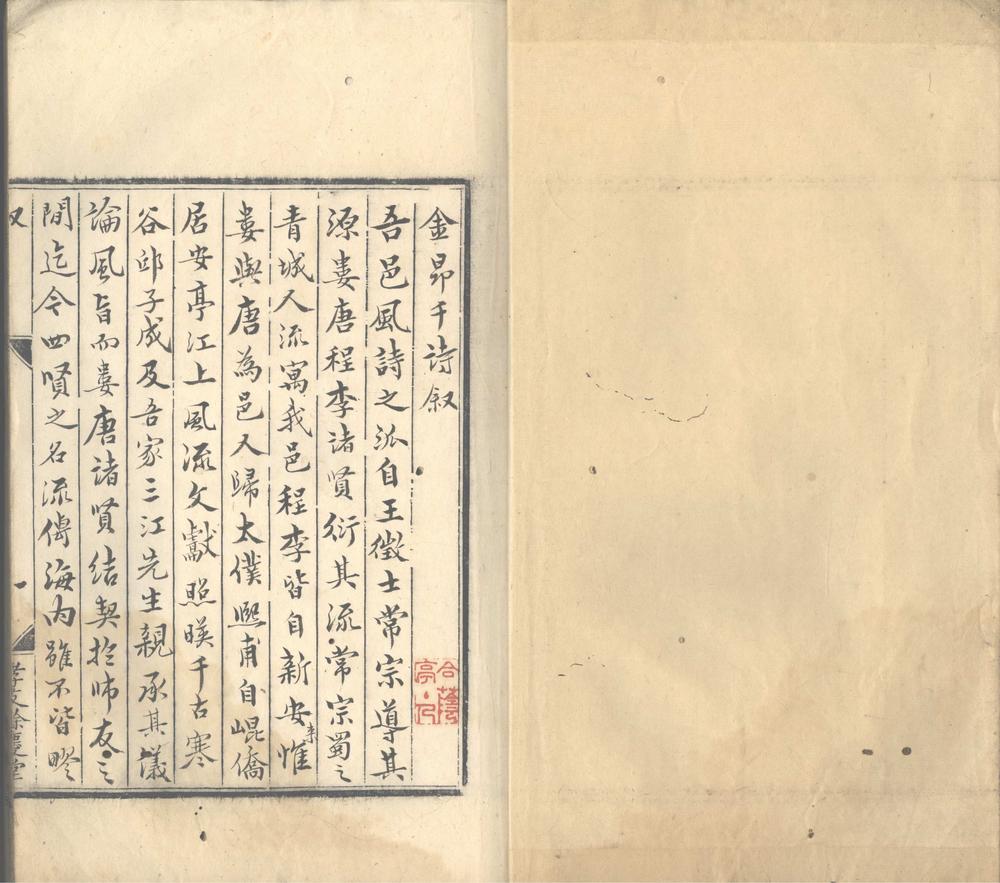 金昂千诗叙
吾邑風詩之派自王徵士常宗導其
源婁唐程李诸贤衍其流常宗蜀之
青城人流寓我邑程李皆自新安来惟
婁與唐為邑人歸太僕熙甫自崐僑
居安亭江上風流文獻照暎千古寒
谷邱子成及吾家三江先生親承其議
論風旨而婁唐諸贤结契扵师友之
間迄今四贤之名流傳海内雖不皆
叙
一